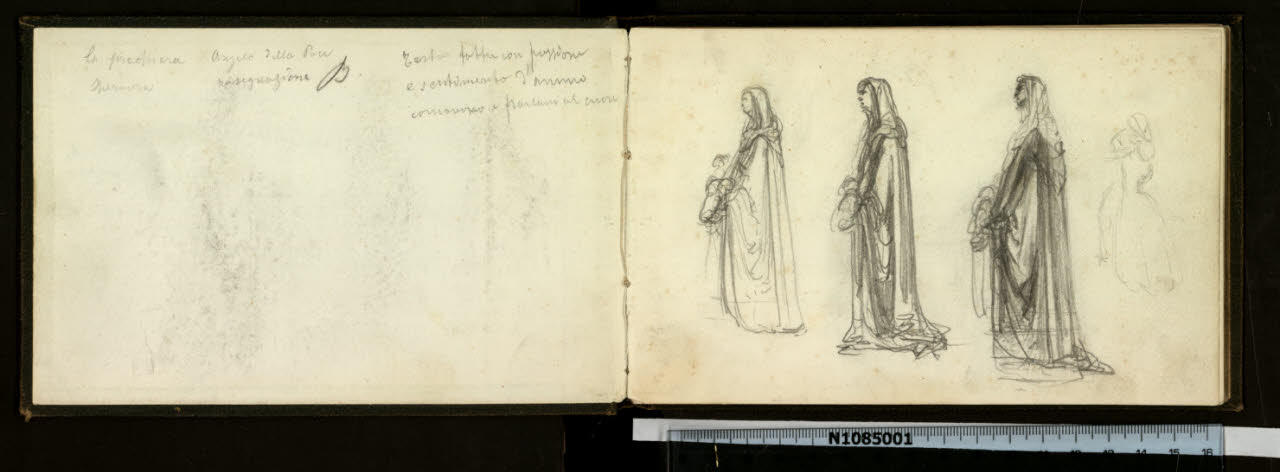 la preghiera
Angelo della Pace
rassegnazione
Testa fatta con passione
e sentimento d'animo
al cuore
N1085001
11 12 13 14 15 16